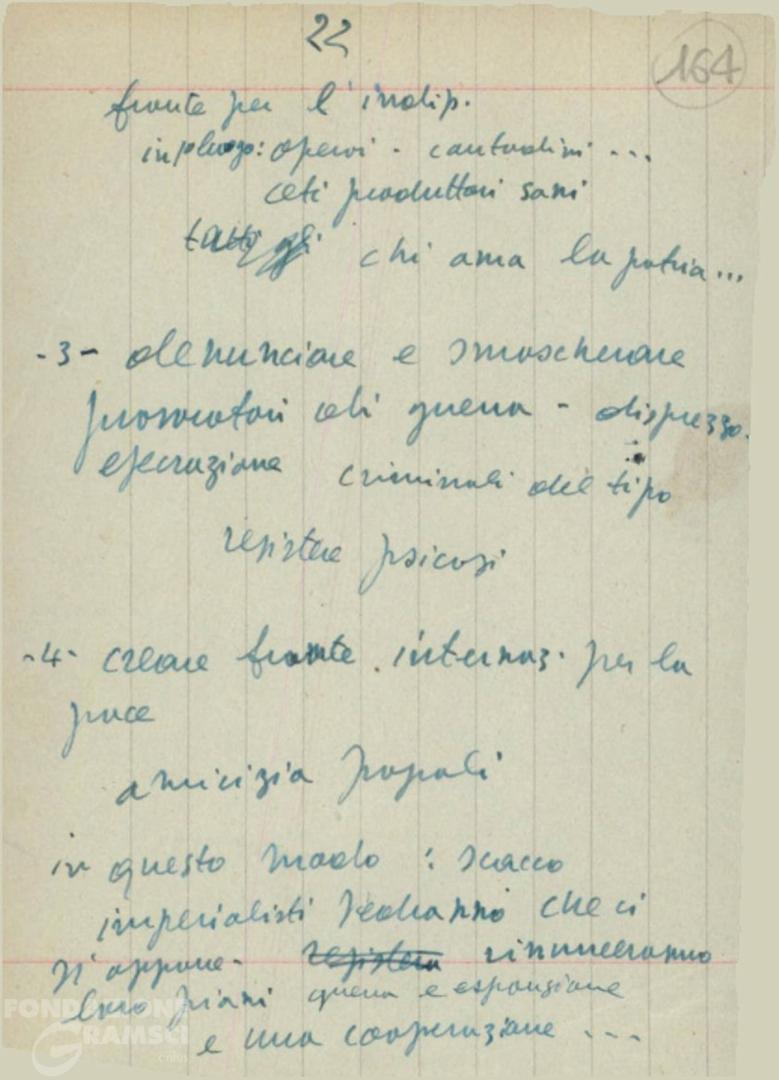 22
164
fronte per l'indip.
in pleno: operai - contadini ...
ceti produttori sani
tutti gli chi ama la patria...
-3- denunciare e smascherare
provocatori di guerra - disprezzo.
esecrazione criminali del tipo
resistere psicosi
-4- creare fronte internaz. per la
pace
amicizia popoli
in questo modo: scacco
imperialisti vedranno che ci
si oppone - resistere rinunceranno
loro piani guerra e espansione
e una cooperazione ...
FONDAZIONE
GRAMSCI